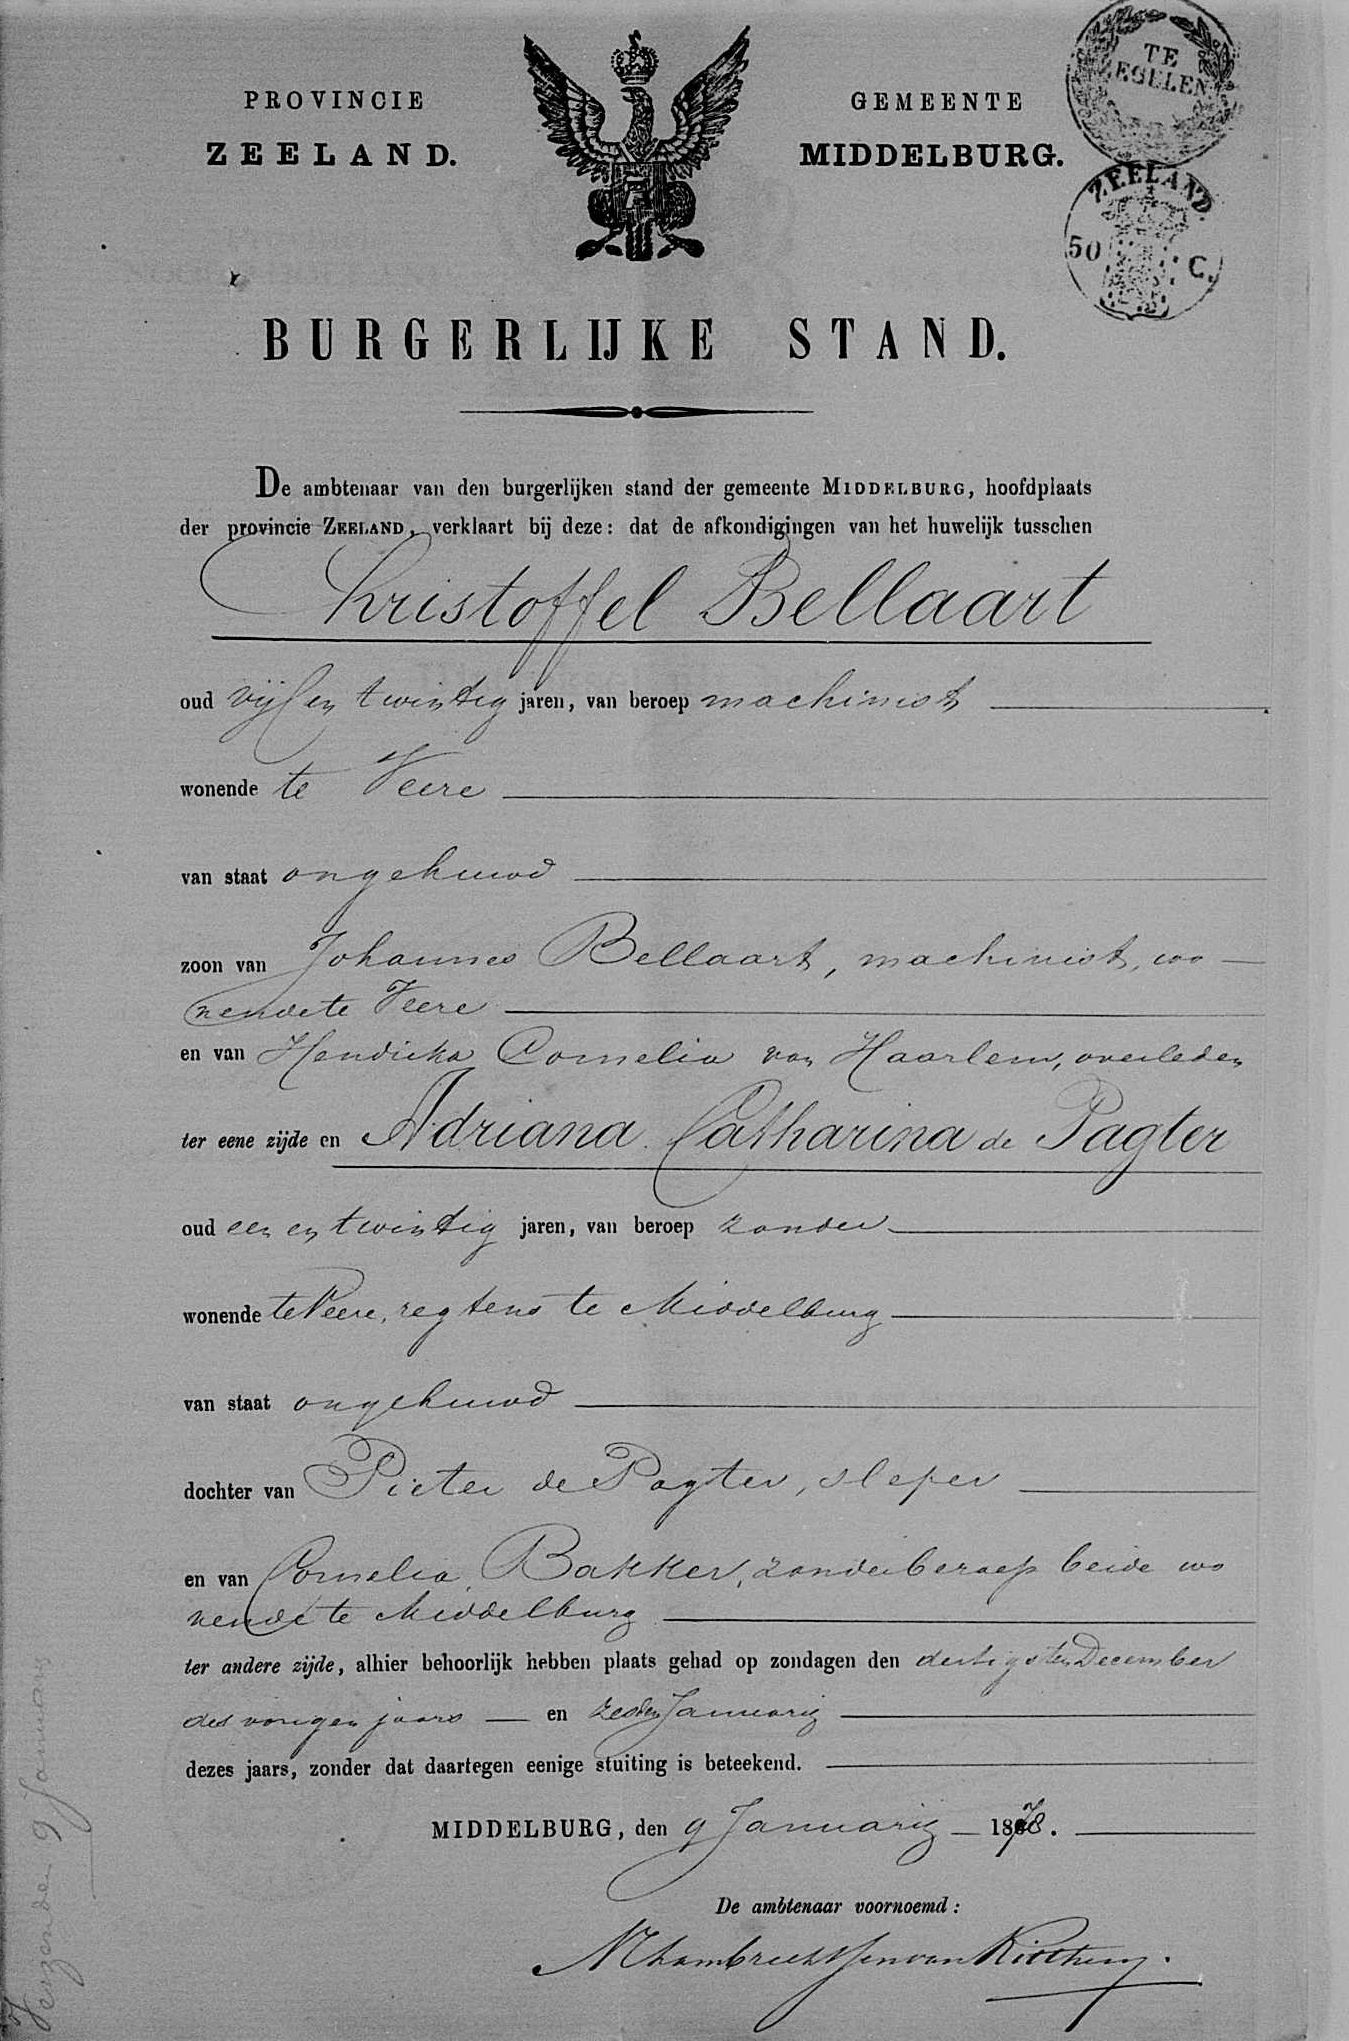 PROVINCIE
ZEELAND.
GEMEENTE
MIDDELBURG.
TE
ZEGELEN
ZEELAND.
50 C.
BURGERLIJKE STAND.
De ambtenaar van den burgerlijken stand der gemeente MIDDELBURG, hoofdplaats
der provincie ZEELAND, verklaart bij deze: dat de afkondigingen van het huwelijk tusschen
Christoffel Bellaart
oud vijf en twintig jaren, van beroep machinist
wonende te Veere
van staat ongehuwd
zoon van Johannes Bellaart, machinist, wo
nende te Veere
en van Hendrika Cornelia van Haarlem, overleden
ter eene zijde en Adriana Catharina de Pagter
oud een en twintig jaren, van beroep zonder
wonende te Veere, regtens te Middelburg
van staat ongehuwd
dochter van Pieter de Pagter, sleper
en van Cornelia Bakker, zonder beroep beide wo
nende te Middelburg
ter andere zijde, alhier behoorlijk hebben plaats gehad op zondagen den dertigsten December
des vorigen jaars — en zesden Januarij
dezes jaars, zonder dat daartegen eenige stuiting is beteekend.
MIDDELBURG, den 9 Januarij 1878.
De ambtenaar voornoemd:
Verzonden 9 Januarij